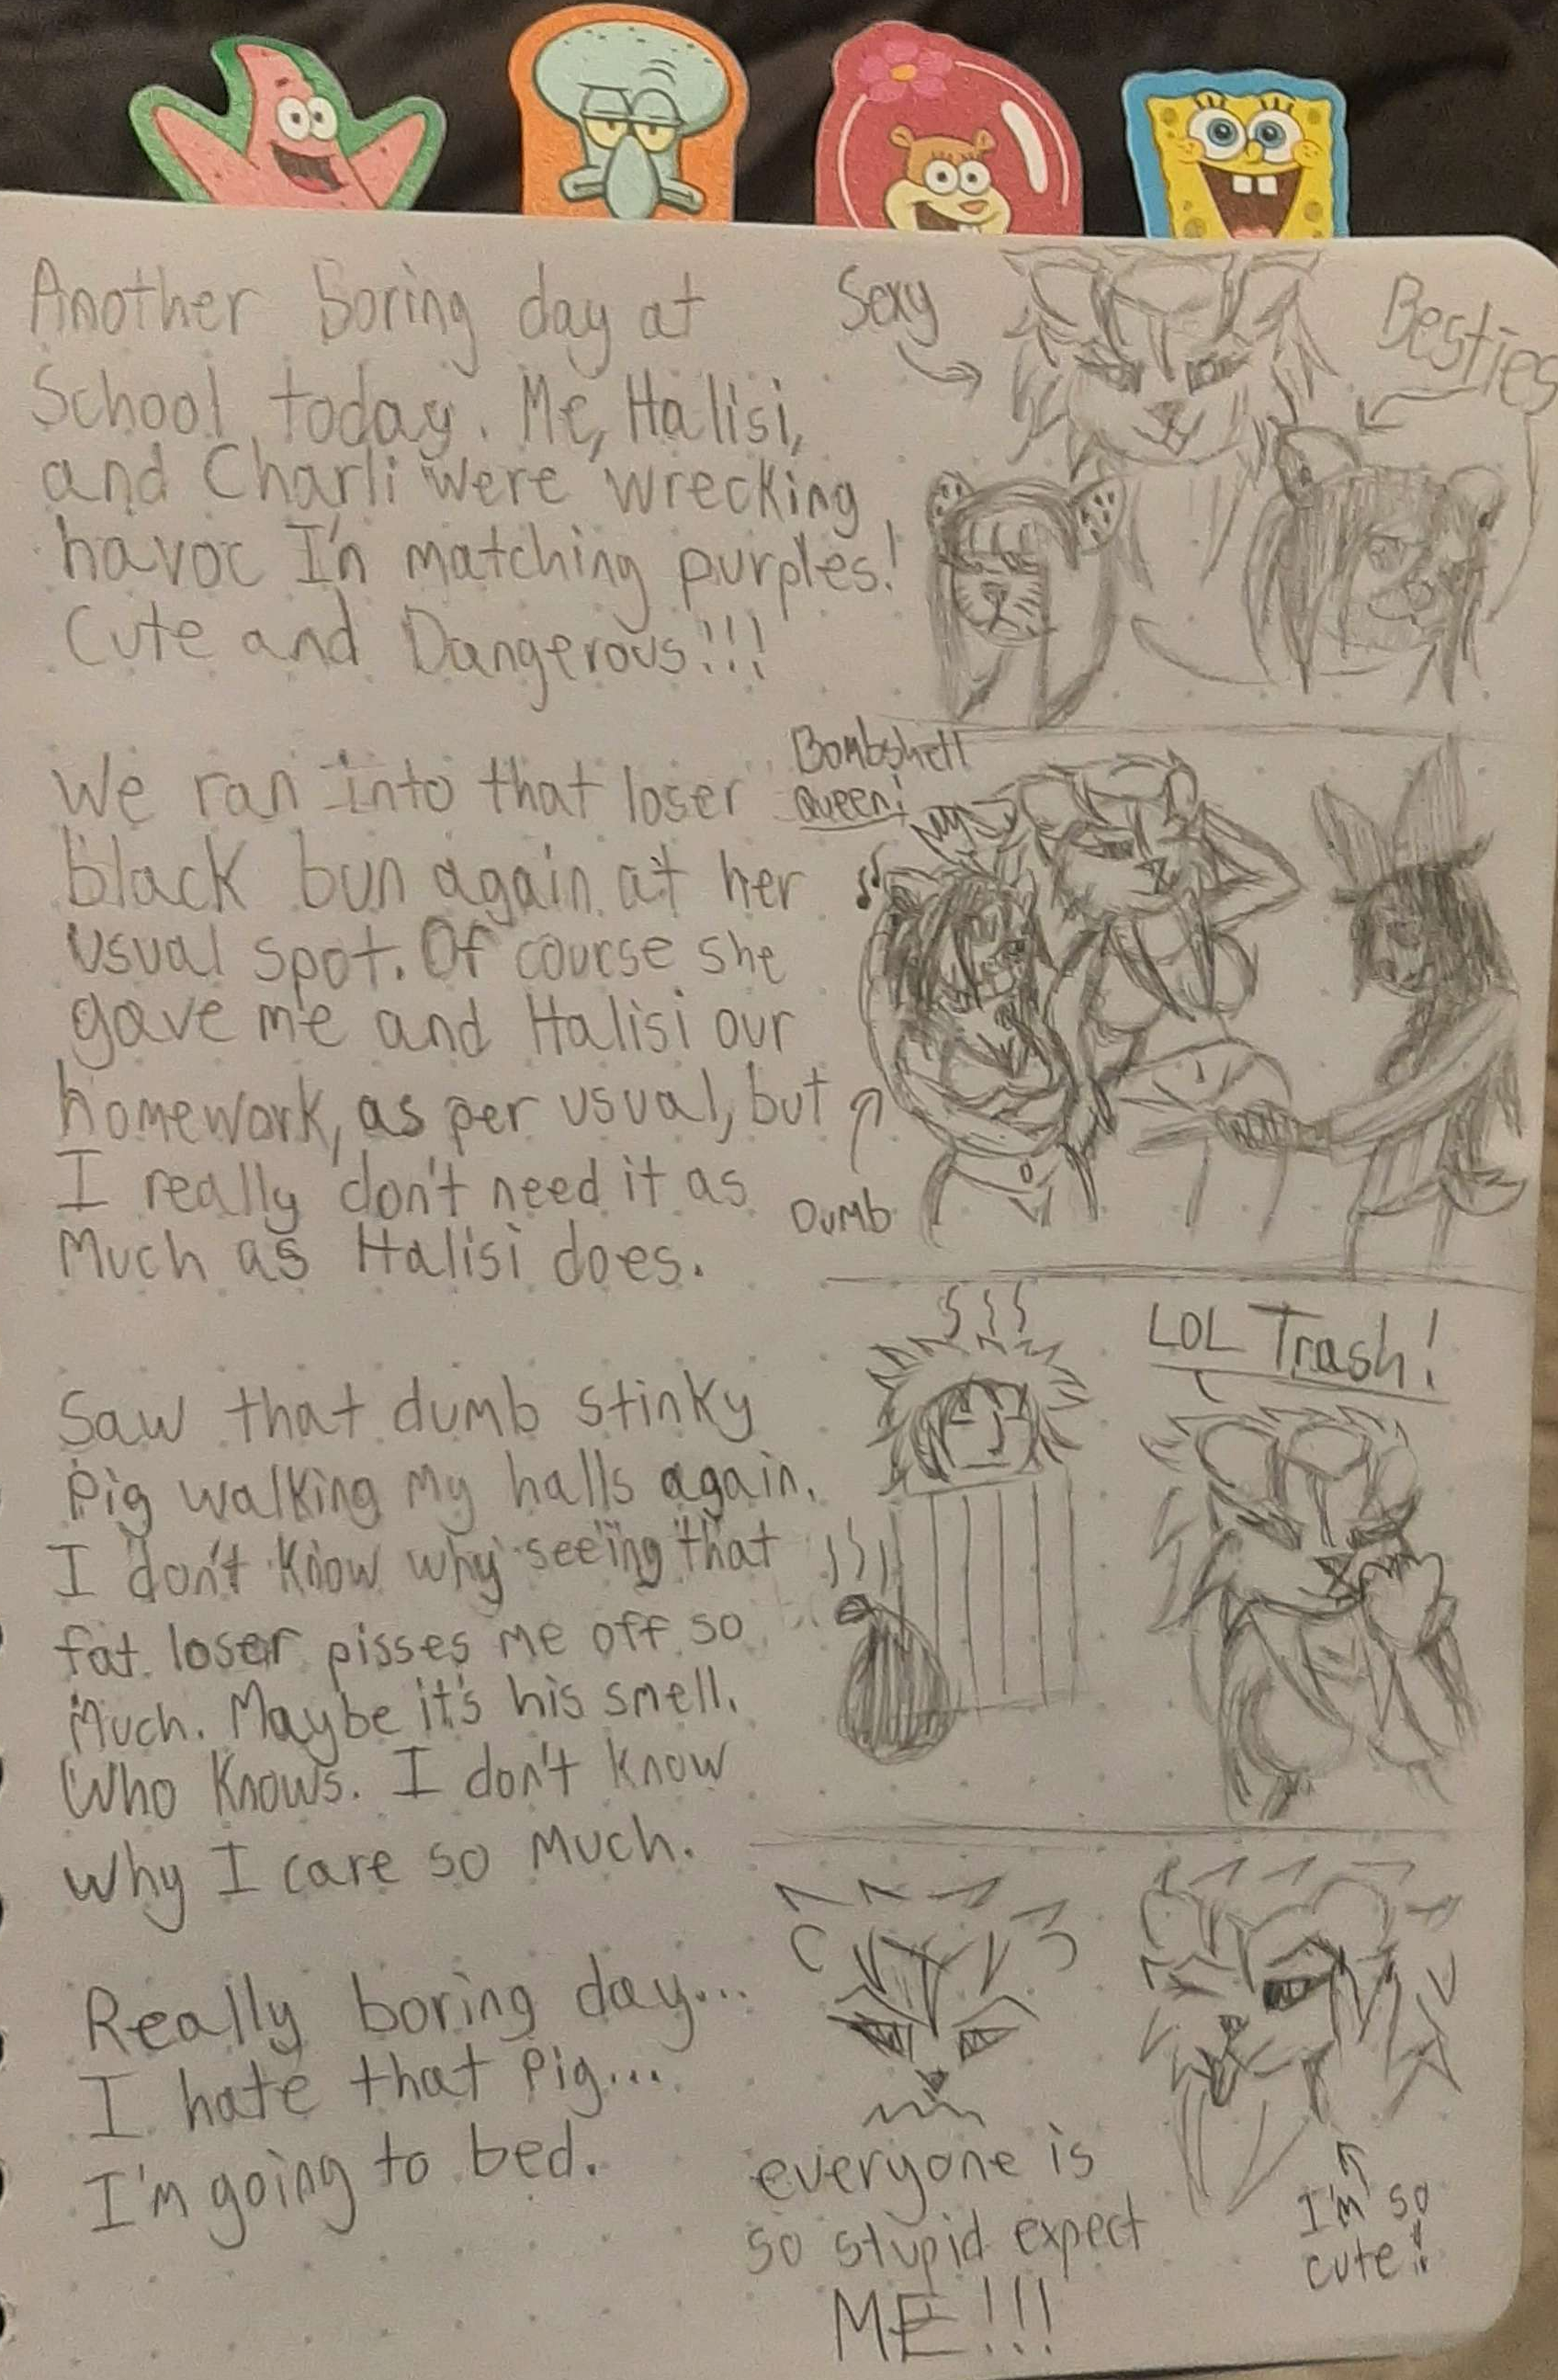 Another boring day at
School today. Me, Halisi,
and Charli were wrecking
havoc I'n matching purples!
Cute and Dangerous!!!
Sexy
Besties
We ran into that loser
black bun again at her
usual spot. Of course she
gave me and Halisi our
homework, as per usual, but
I really don't need it as
Much as Halisi does.
Bombshell
queen!
Dumb
Saw that dumb stinky
Pig walking my halls again.
I don't know why seeing that
fat loser pisses me off so
Much. Maybe it's his smell.
Who Knows. I don't know
why I care so much.
LOL Trash!
Really boring day...
I hate that Pig...
I'm going to bed.
everyone is
so stupid expect
ME!!!
I'm so
cute!!